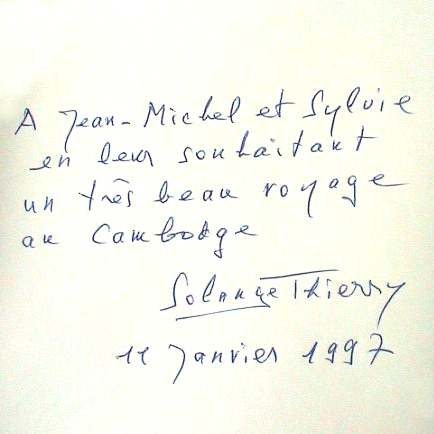 A Jean-Michel et Sylvie
en leur souhaitant
un très beau voyage
au Cambodge
Solange Thierry
11 Janvier 1997